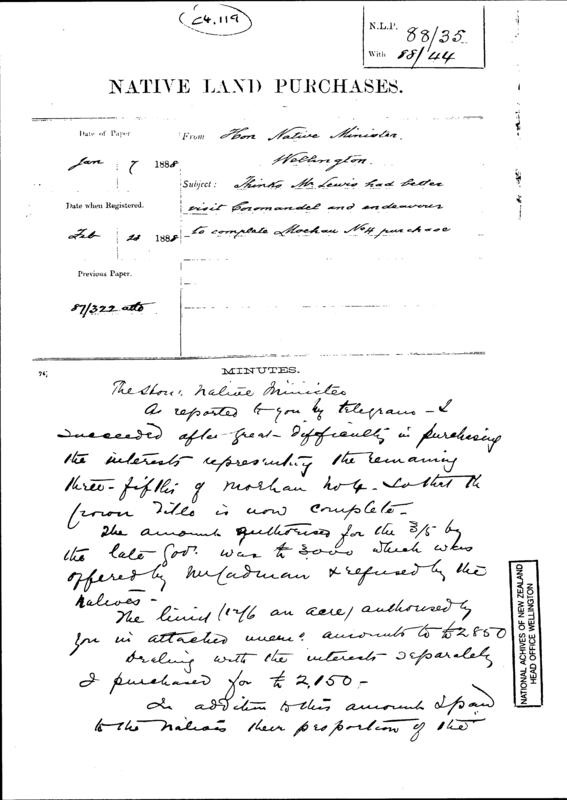 C4.119
N.L.P. 88/35
With 88/44
NATIVE LAND PURCHASES.
Date of Paper
Jan 7 1888
Date when Registered.
Feb 1888
Previous Paper.
87/322 atto
From Hon Native Minister
Wellington.
Subject: Thinks Mr Lewis had better
visit Coromandel and endeavour
to complete Moehau No 4 purchase
MINUTES.
The Hon: Native Minister
As reported to you by telegram - I
succeeded after great difficulty in purchasing
the interests representing the remaining
three-fifths of Moehau No 4 - so that the
Crown Title is now complete -
The amount authorised for the 3/5 by
the late Govt was £3000 which was
offered by Mr Cadman & refused by the
Natives -
The limit (12/6 an acre) authorised by
you in attached amounts to £2850
Dealing with the interests separately
I purchased for £2,150 -
In addition to this amount I paid
to the Natives their proportion of the
NATIONAL ACHIVES OF NEW ZEALAND
HEAD OFFICE WELLINGTON